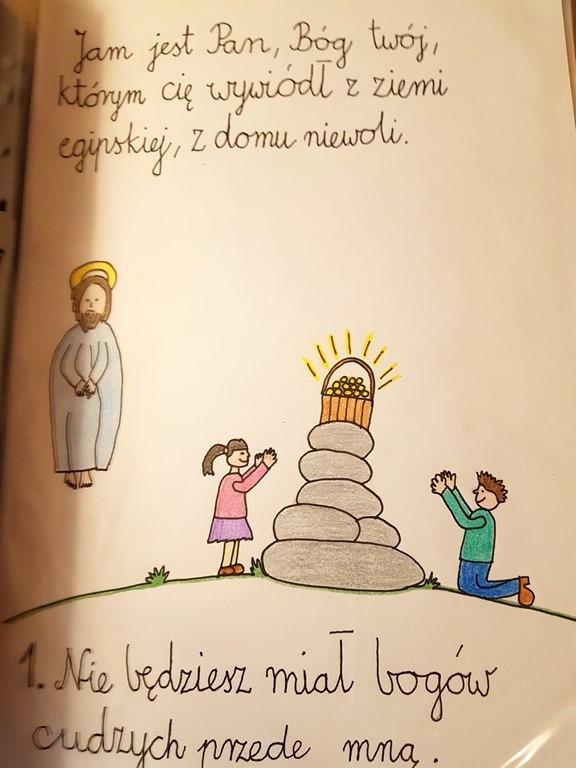 Jam jest Pan, Bóg twój,
którym cię wywiódł z ziemi
egipskiej, z domu niewoli.
1. Nie będziesz miał bogów
cudzych przede mną.